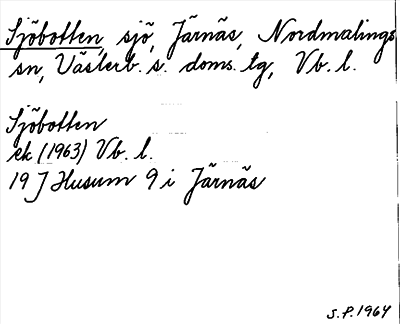 Sjöbotten, sjö, Järnäs, Nordmalings
sn, Västerb. s. doms. tg, Vb. l.
Sjöbotten
ek (1963) Vb. l.
19 J Husum 9 i Järnäs
S.P. 1964